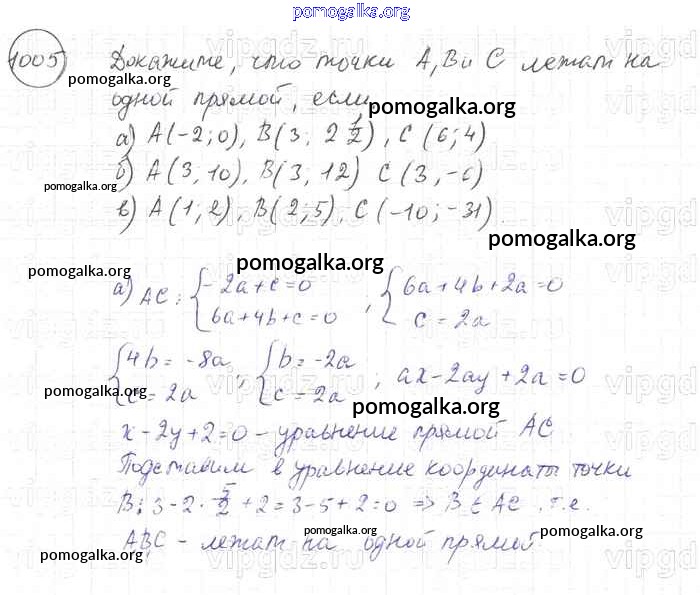 pomogalka.org
1005 Докажите, что точки A, B и C лежат на
pomogalka.org
одной прямой, если pomogalka.org
а) A(-2; 0), B(3; 2 1/2), C(6; 4)
pomogalka.org б) A(3; 10), B(3; 12) C(3, -6)
в) A(1; 2), B(2; 5), C(-10; -31)
pomogalka.org
pomogalka.org pomogalka.org
а) AC: { -2a+c=0 ; { 6a+4b+2a=0
6a+4b+c=0 c=2a
{ 4b=-8a ; { b=-2a ; ax-2ay+2a=0
c=2a c=2a
pomogalka.org pomogalka.org
x-2y+2=0 - уравнение прямой AC
Подставим в уравнение координаты точки
B: 3-2·5/2+2=3-5+2=0 => B ∈ AC т.е.
pomogalka.org pomogalka.org
ABC - лежат на одной прямой
pomogalka.org pomogalka.org